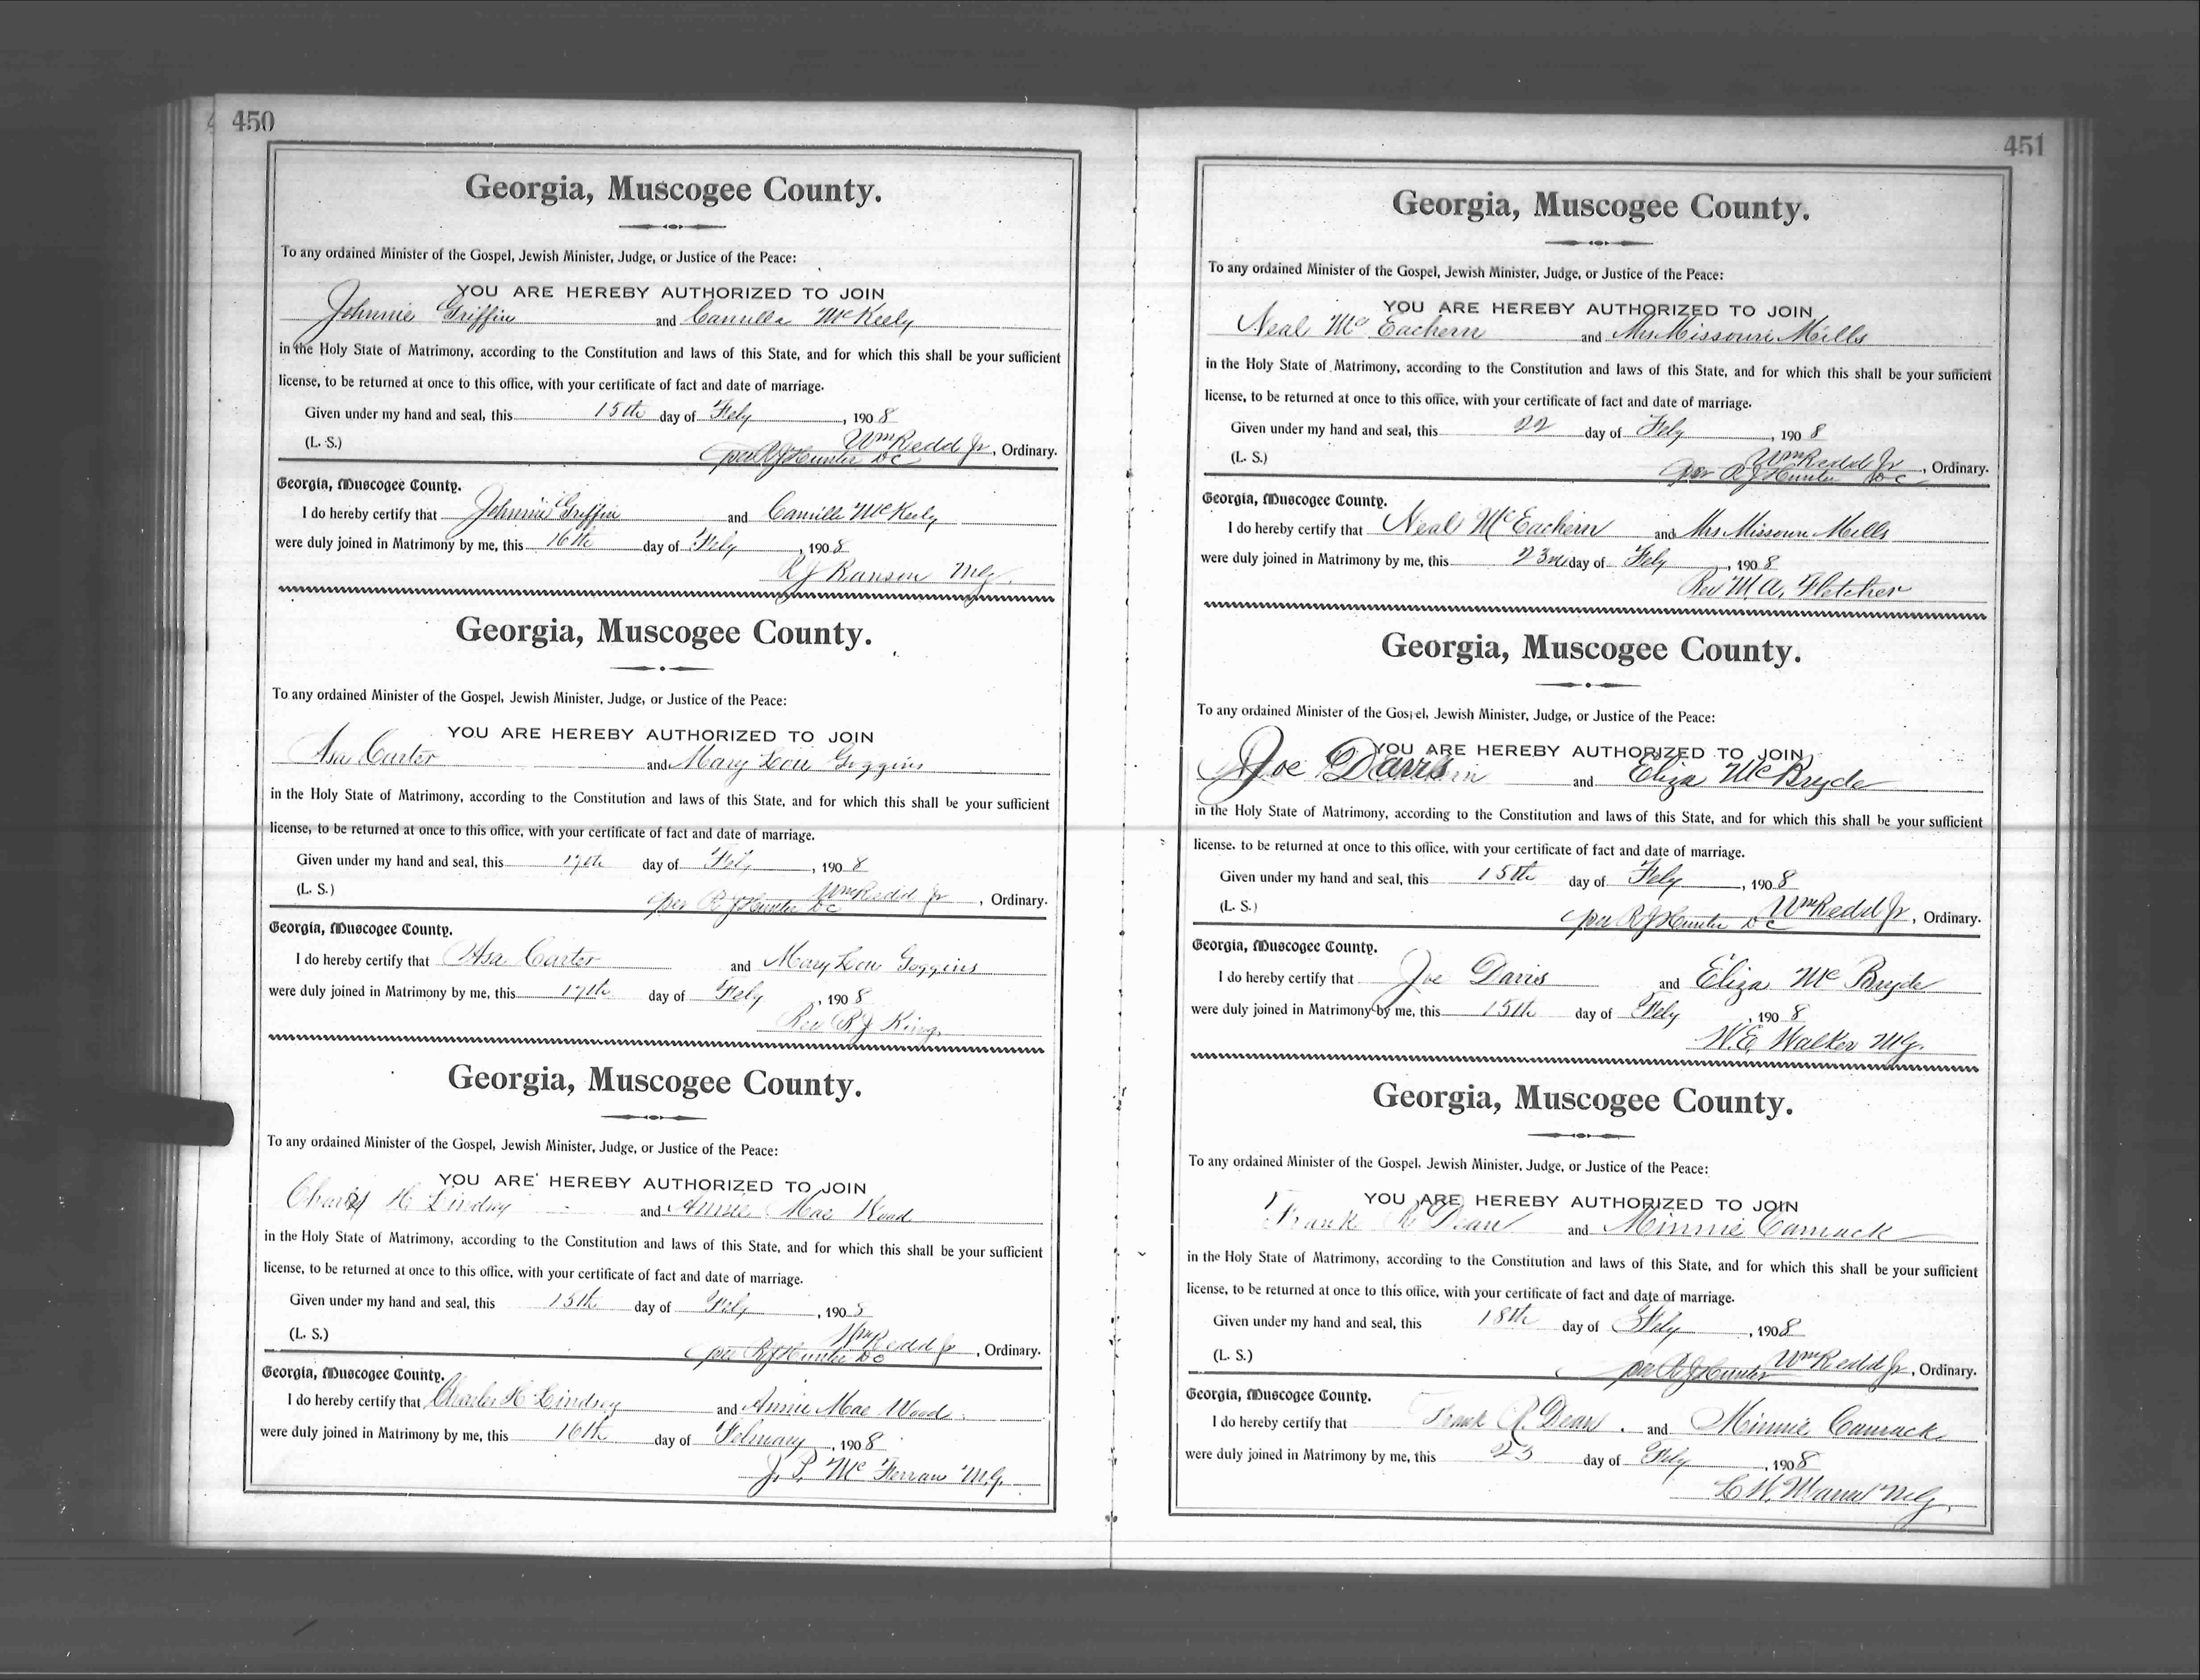 450
Georgia, Muscogee County.
To any ordained Minister of the Gospel, Jewish Minister, Judge, or Justice of the Peace:
YOU ARE HEREBY AUTHORIZED TO JOIN
Johnnie Griffin and Camilla McKeely
in the Holy State of Matrimony, according to the Constitution and laws of this State, and for which this shall be your sufficient
license, to be returned at once to this office, with your certificate of fact and date of marriage.
Given under my hand and seal, this 15th day of Feby, 1908
(L. S.) Wm Redd Jr, Ordinary.
per R J Hunter DC
Georgia, Muscogee County.
I do hereby certify that Johnnie Griffin and Camilla McKeely
were duly joined in Matrimony by me, this 16th day of Feby, 1908
R J Ranson M.G.
Georgia, Muscogee County.
To any ordained Minister of the Gospel, Jewish Minister, Judge, or Justice of the Peace:
YOU ARE HEREBY AUTHORIZED TO JOIN
Asa Carter and Mary Lou Goggins
in the Holy State of Matrimony, according to the Constitution and laws of this State, and for which this shall be your sufficient
license, to be returned at once to this office, with your certificate of fact and date of marriage.
Given under my hand and seal, this 17th day of Feby, 1908
(L. S.) Wm Redd Jr, Ordinary.
per R J Hunter DC
Georgia, Muscogee County.
I do hereby certify that Asa Carter and Mary Lou Goggins
were duly joined in Matrimony by me, this 17th day of Feby, 1908
Rev R J King
Georgia, Muscogee County.
To any ordained Minister of the Gospel, Jewish Minister, Judge, or Justice of the Peace:
YOU ARE HEREBY AUTHORIZED TO JOIN
Charles H Lindsey and Annie Mae Wood
in the Holy State of Matrimony, according to the Constitution and laws of this State, and for which this shall be your sufficient
license, to be returned at once to this office, with your certificate of fact and date of marriage.
Given under my hand and seal, this 15th day of Feby, 1908
(L. S.) Wm Redd Jr, Ordinary.
per R J Hunter DC
Georgia, Muscogee County.
I do hereby certify that Charles H Lindsey and Annie Mae Wood
were duly joined in Matrimony by me, this 16th day of February, 1908
J. P. McFerran M.G.
451
Georgia, Muscogee County.
To any ordained Minister of the Gospel, Jewish Minister, Judge, or Justice of the Peace:
YOU ARE HEREBY AUTHORIZED TO JOIN
Neal McEachern and Mrs Missouri Mills
in the Holy State of Matrimony, according to the Constitution and laws of this State, and for which this shall be your sufficient
license, to be returned at once to this office, with your certificate of fact and date of marriage.
Given under my hand and seal, this 22 day of Feby, 1908
(L. S.) Wm Redd Jr, Ordinary.
per R J Hunter DC
Georgia, Muscogee County.
I do hereby certify that Neal McEachern and Mrs Missouri Mills
were duly joined in Matrimony by me, this 23rd day of Feby, 1908
Rev M.A. Fletcher
Georgia, Muscogee County.
To any ordained Minister of the Gospel, Jewish Minister, Judge, or Justice of the Peace:
YOU ARE HEREBY AUTHORIZED TO JOIN
Joe Davis and Eliza McBryde
in the Holy State of Matrimony, according to the Constitution and laws of this State, and for which this shall be your sufficient
license, to be returned at once to this office, with your certificate of fact and date of marriage.
Given under my hand and seal, this 15th day of Feby, 1908
(L. S.) Wm Redd Jr, Ordinary.
per R J Hunter DC
Georgia, Muscogee County.
I do hereby certify that Joe Davis and Eliza McBryde
were duly joined in Matrimony by me, this 15th day of Feby, 1908
W.E. Walker M.G.
Georgia, Muscogee County.
To any ordained Minister of the Gospel, Jewish Minister, Judge, or Justice of the Peace:
YOU ARE HEREBY AUTHORIZED TO JOIN
Frank R Dean and Minnie Camack
in the Holy State of Matrimony, according to the Constitution and laws of this State, and for which this shall be your sufficient
license, to be returned at once to this office, with your certificate of fact and date of marriage.
Given under my hand and seal, this 18th day of Feby, 1908
(L. S.) Wm Redd Jr, Ordinary.
per R J Hunter
Georgia, Muscogee County.
I do hereby certify that Frank R Dean and Minnie Camack
were duly joined in Matrimony by me, this 23 day of Feby, 1908
C W. M.G.